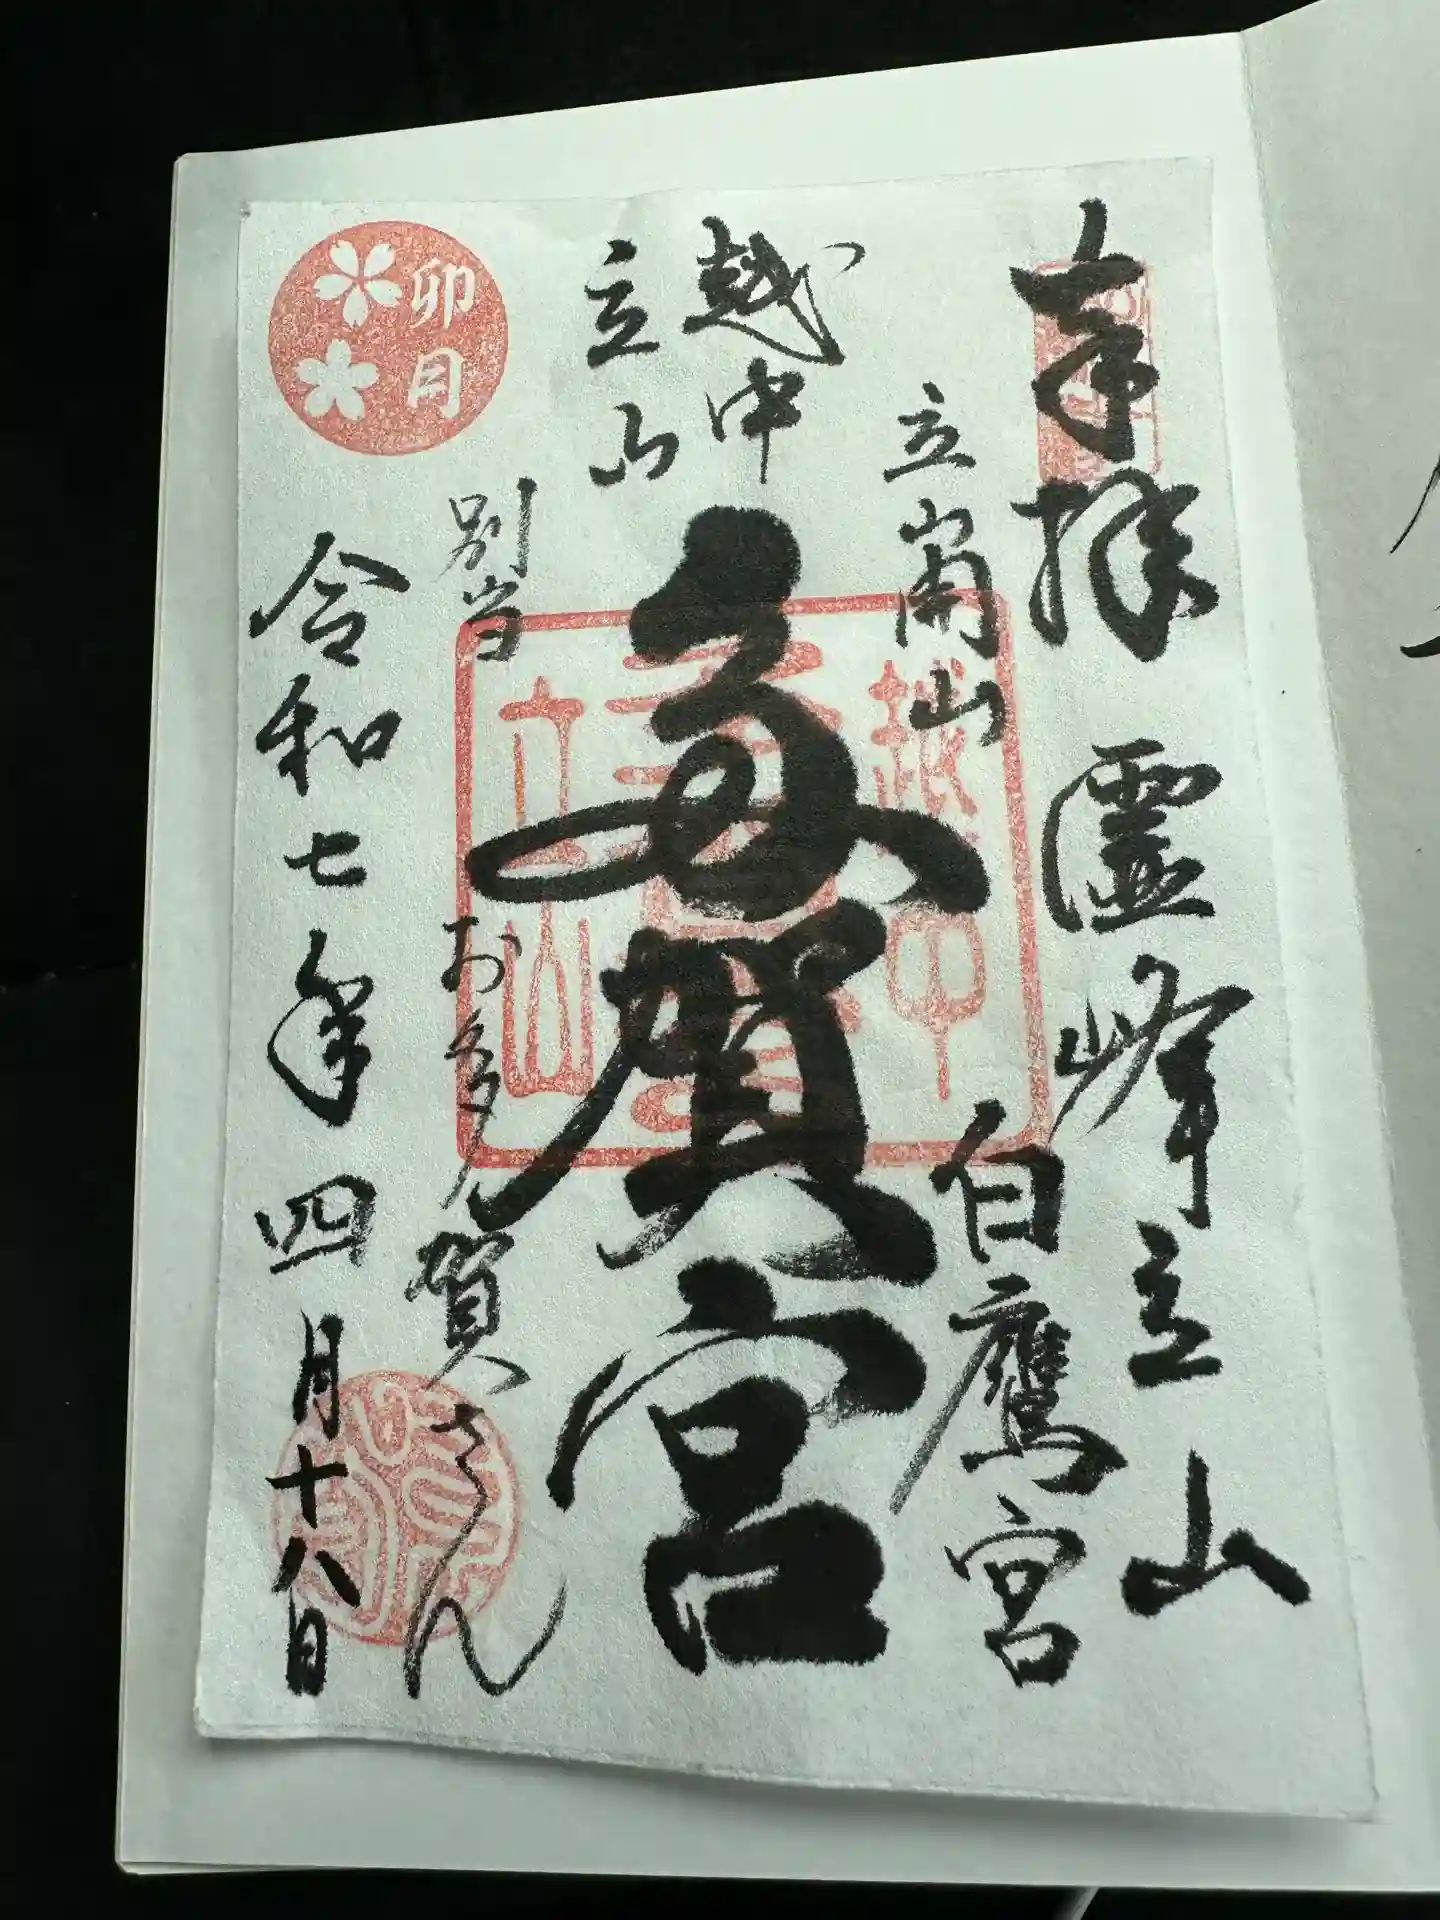 奉拝 霊峰立山
立山開山 白鷹宮
越中
立山
多賀宮
越中
立山
別当 お多賀さん
卯月
令和七年四月十八日